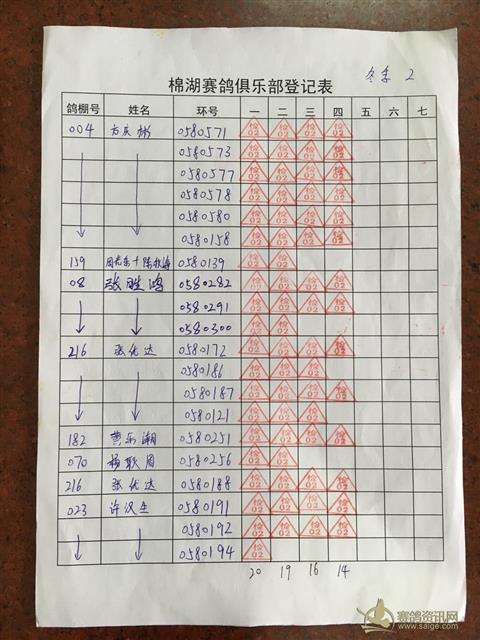 冬季 2
棉湖赛鸽俱乐部登记表
鸽棚号 姓名 环号 一 二 三 四 五 六 七
004 方庆彬 0580571 检02 检02 检02 检02
0580573 检02 检02 检02 检02
0580577 检02 检02 检02 检02
0580578 检02 检02 检02 检02
0580580 检02 检02 检02 检02
0580158 检02 检02 检02 检02
159 0580139 检02 检02
08 张胜鸿 0580282 检02 检02 检02 检02
0580291 检02 检02 检02
0580300 检02 检02
216 张优达 0580172 检02 检02 检02 检02
0580186 检02 检02 检02
0580187 检02 检02 检02 检02
0580121 检02 检02 检02
182 黄乐湖 0580251 检02 检02 检02 检02
070 杨歆周 0580256 检02 检02
216 张优达 0580188 检02 检02 检02 检02
023 许汉生 0580191 检02 检02 检02 检02
0580192 检02 检02 检02 检02
0580194 检02
20 19 16 14
赛鸽资讯网
www.saige.com